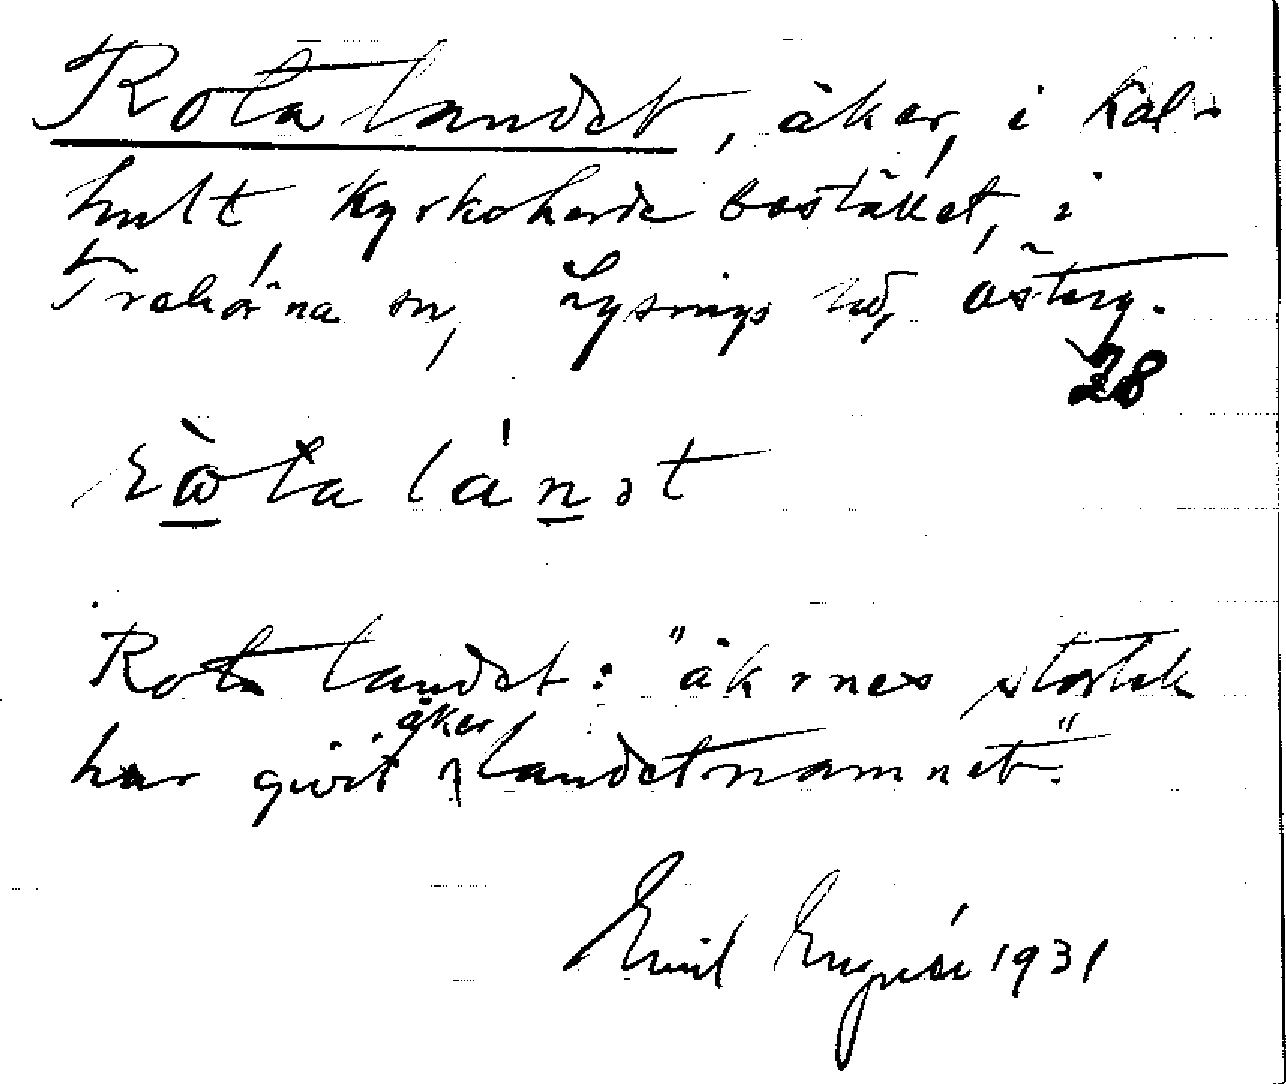 Rotalandet, åker, i Kal-
hult Kyrkoherde bostället, i
Trehörna sn, Lysings hd, Österg.
28
ròta lánət
Rota landet: "åkrnes storlek
har givit åker landetnamnet."
Emil 1931